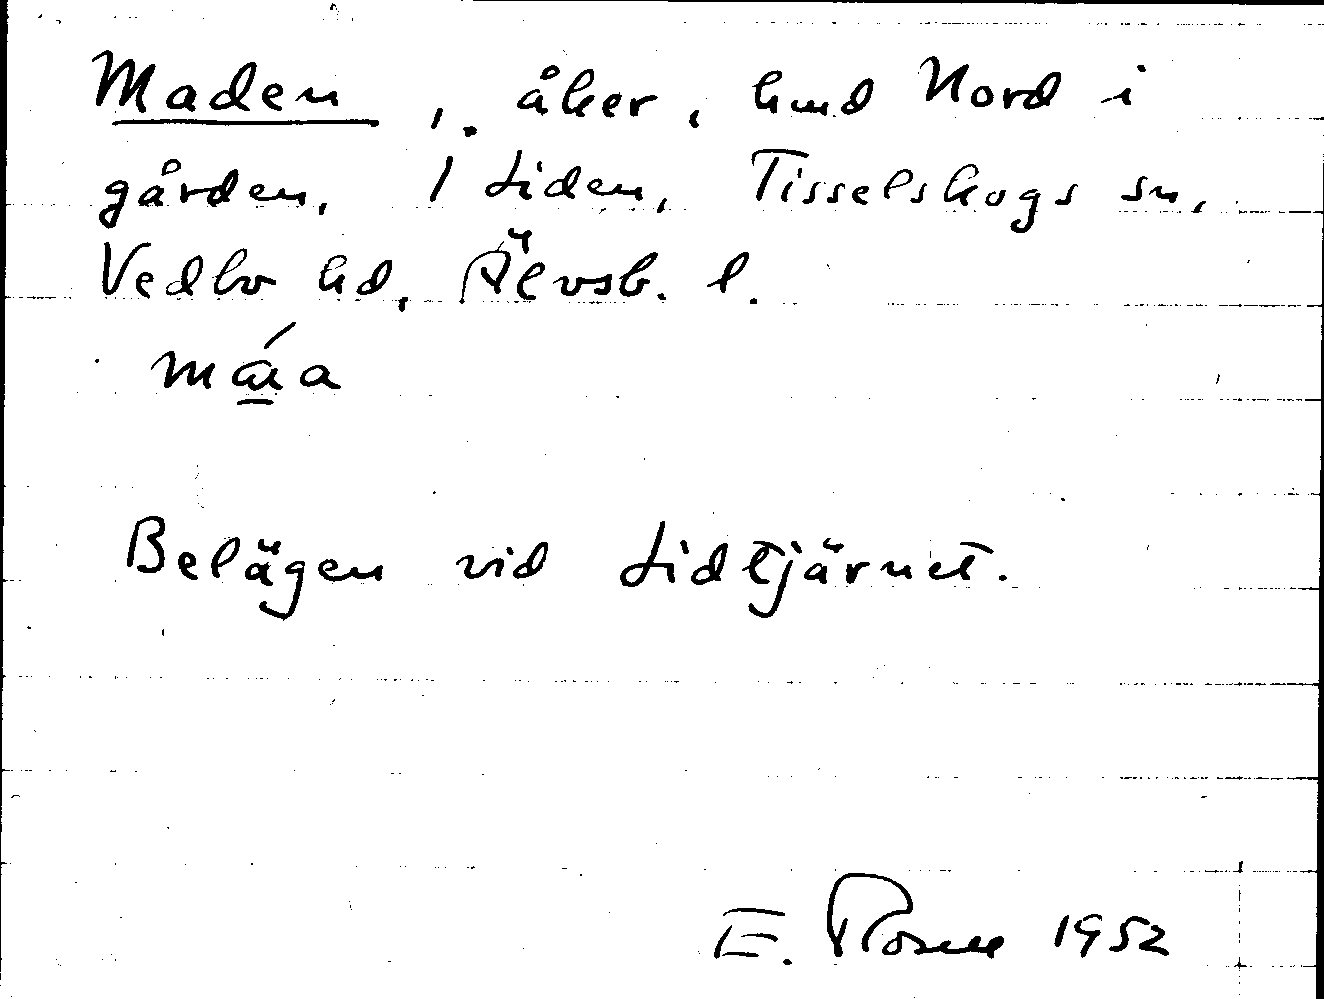 Maden, åker, hmd Nord i
gården, 1 Liden, Tisselskogs sn,
Vedbo hd, Älvsb. l.
máa
Belägen vid Lidtjärnet.
E. 1952